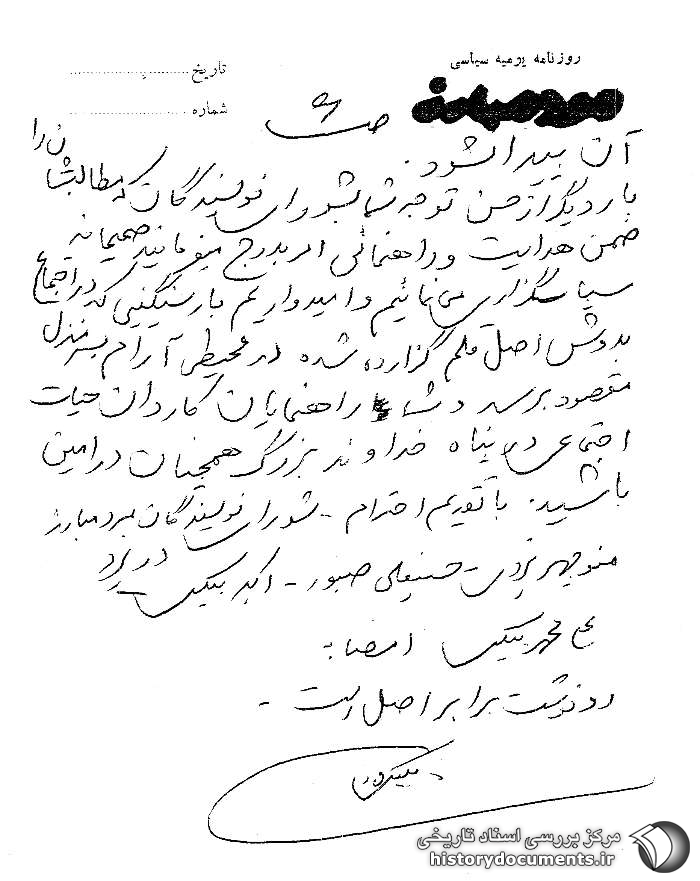 روزنامه یومیه سیاسی
مرد مبارز
تاریخ
شماره
ص ۶
آن پیدا شود.
بار دیگر از حسن توجه شما بشورای نویسندگان که مطالبشان را
ضمن هدایت و راهنمائی امر بدرج میفرمایند صمیمانه
سپاسگزاری می نمائیم و امیدواریم بار سنگینی که در اجتماع
بدوش اصل قلم گزارده شده در محیطی آرام بسر منزل
مقصود برسد و شما راهنمایان کاردان حیات
اجتماعی در پناه خداوند بزرگ همچنان در امین
باشید. با تقدیم احترام - شورای نویسندگان مرد مبارز
در یزد
منوچهر یزدی - حسینعلی صبور - اکبر بیکس
ع محمد بیکس امضاء
رونوشت برابر اصل است -
مرکز بررسی اسناد تاریخی
historydocuments.ir